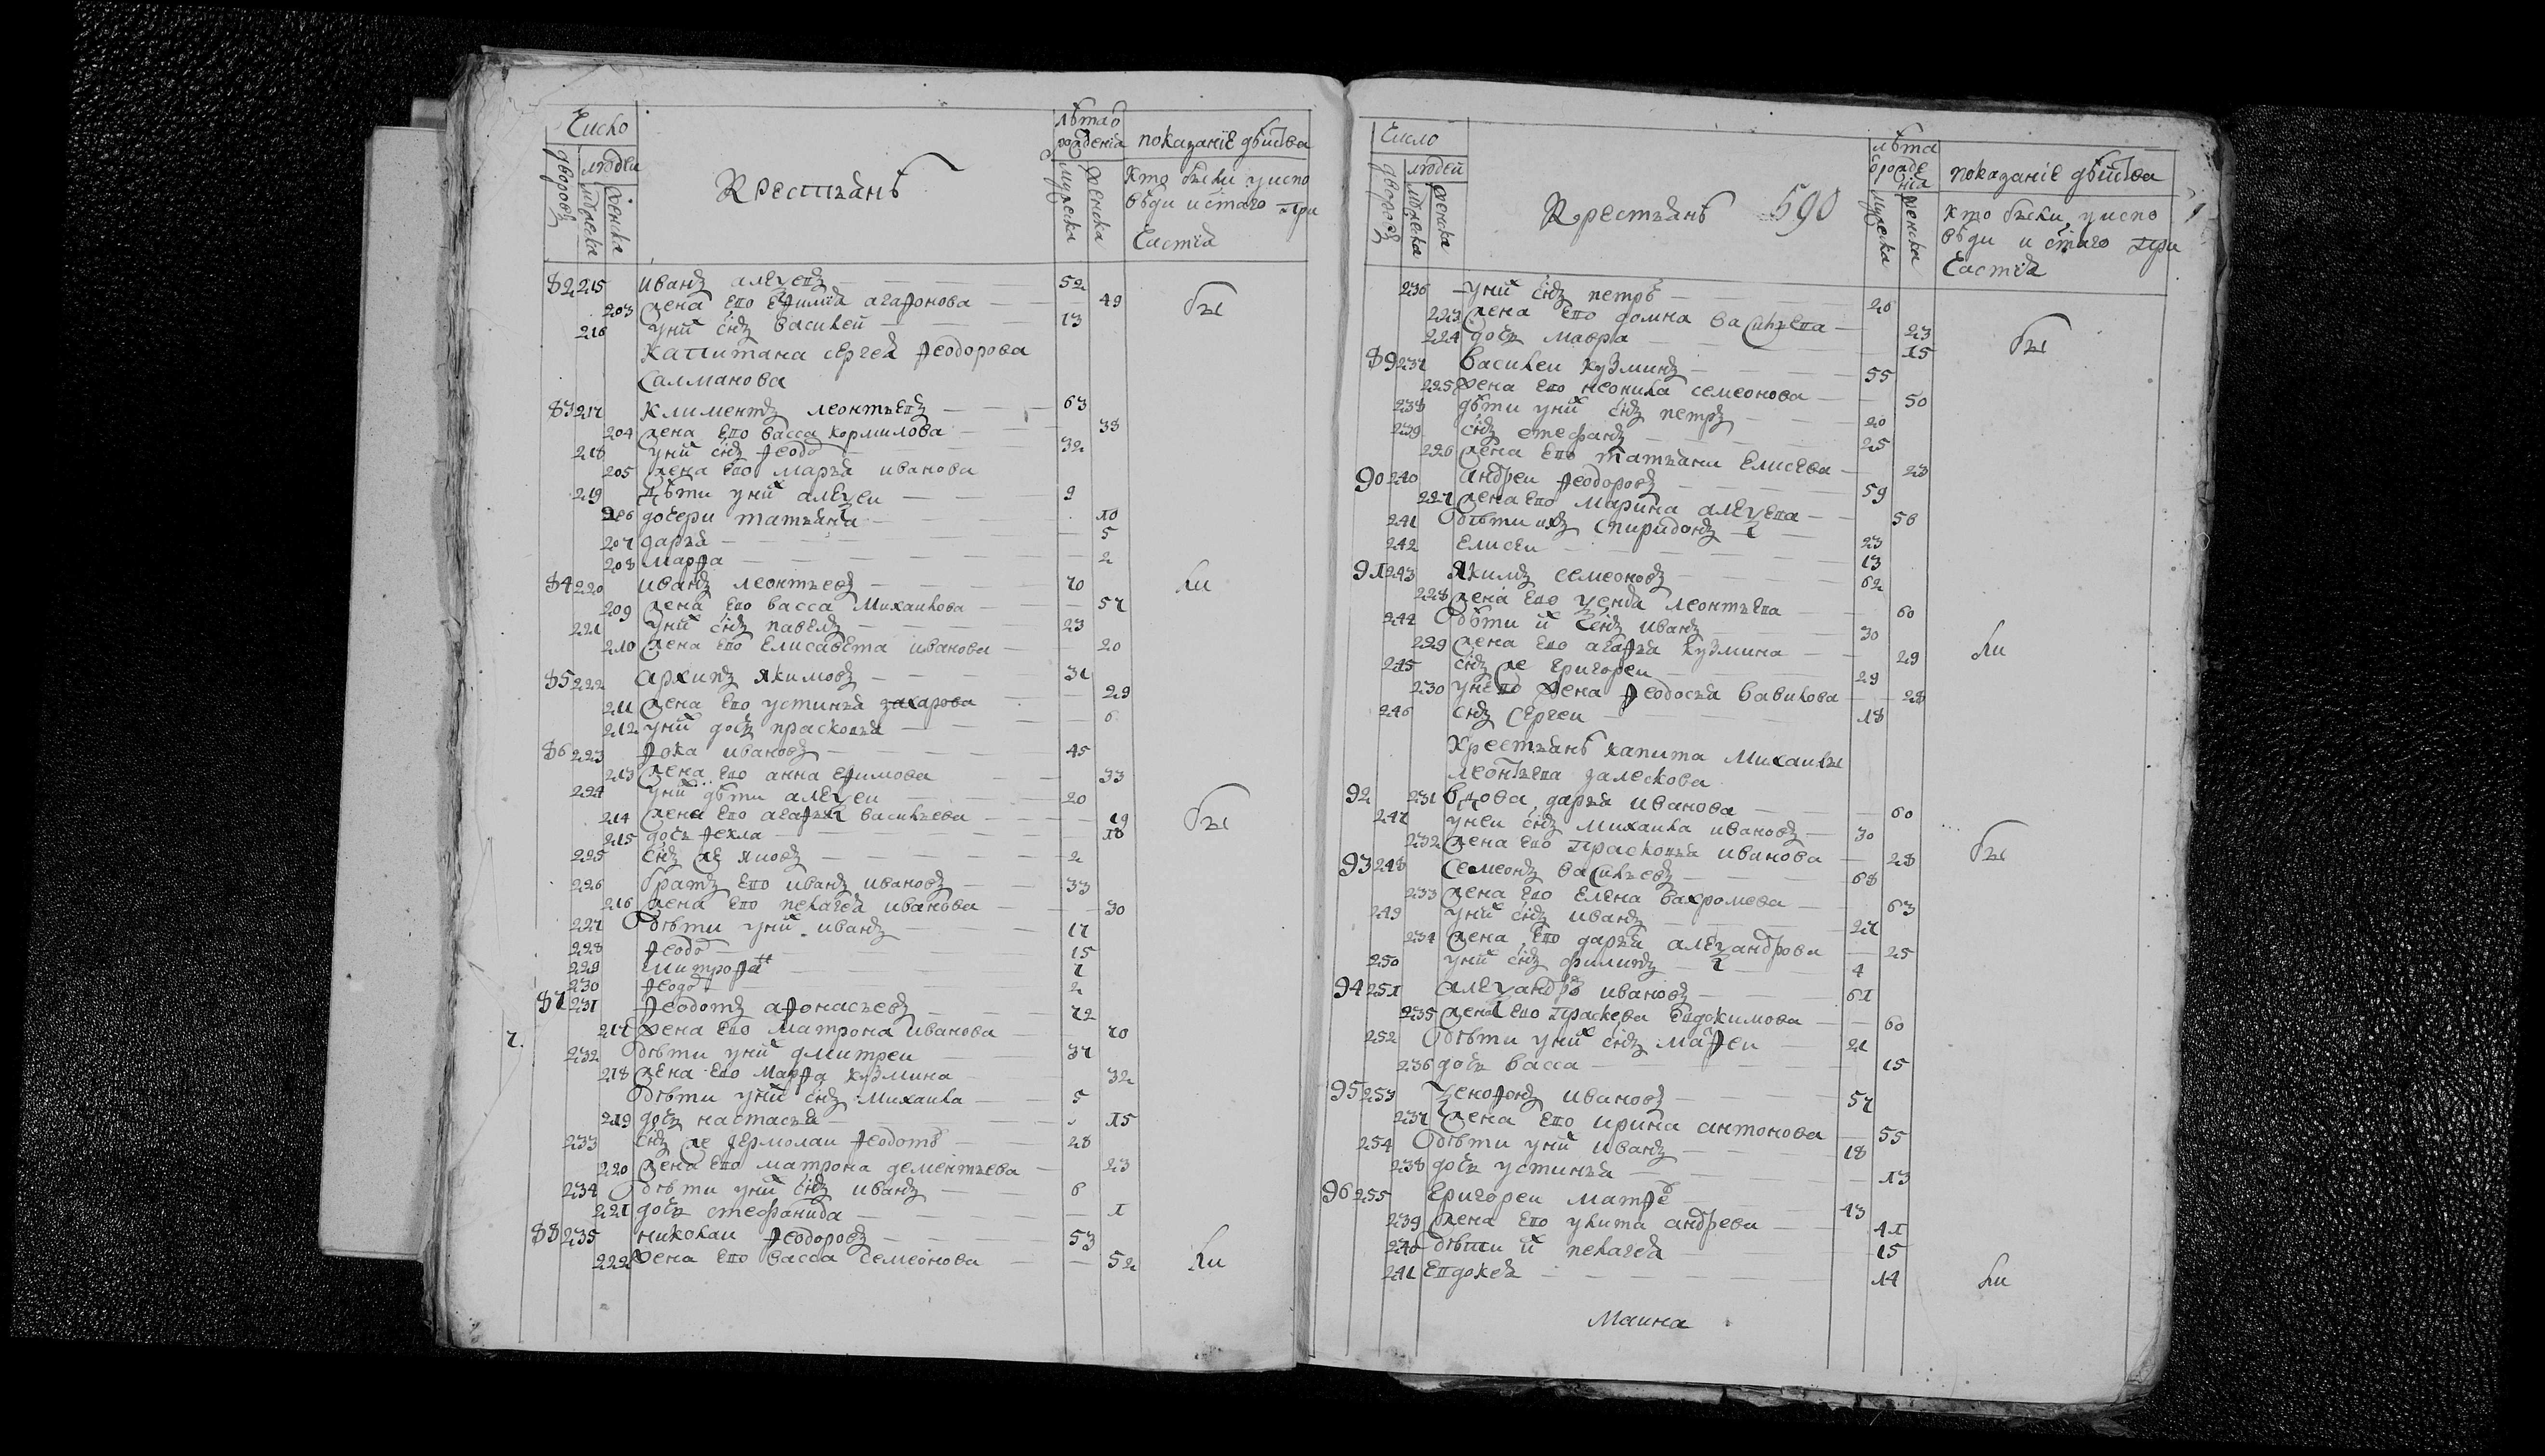 Число
дворовъ
людеи
мужеска
женска
крестьянъ
лѣта ѿ рожденія
мужеска
женска
показаніе дѣиства
кто были у испо
вѣди и с͠таго при
частїа
82 215 иванъ алеѯеевъ 52
203 жена ево ефимїа агафонова 49 бы
216 у нихъ сн҃ъ василеи 13
капитана сергеа феодорова
салманова
83 217 климентъ леонтьевъ 63
204 жена ево васса кормилова 38
218 у нихъ сн҃ъ феодоръ 32
205 жена ево марьа иванова
219 дѣти у нихъ алеѯеи 9
206 дочери татьяна 10
207 дарьа 5
208 марфа 2
84 220 иванъ леонтьевъ 70 ли
209 жена ево васса михаилова 57
221 у нихъ сн҃ъ павелъ 23
210 жена ево елисавета иванова 20
85 222 архипъ якимовъ 31
211 жена ево устиньа захарова 29
212 у нихъ дочь прасковьа 6
86 223 фока ивановъ 45
213 жена ево анна ефимова 33
224 у нихъ дѣти алеѯеи 20
214 жена ево агафьа васильева 19 бы
215 дочь фекла 18
225 сн҃ъ же яковъ 2
226 братъ ево иванъ ивановъ 33
216 жена ево пелагеа иванова 30
227 дѣти у нихъ иванъ 17
228 феодоръ 15
229 митрофанъ 7
230 феодоръ 2
87 231 феодотъ афонасьевъ 72
217 жена ево матрона иванова 70
7.
232 дѣти у нихъ дмитреи 37
218 жена ево марфа кузмина 32
дѣти у нихъ сн҃ъ михаила 5
219 дочь настасьа 15
233 сн҃ъ же ермолаи феодотовъ 28
220 жена ево матрона дементьева 23
234 дѣти у нихъ сн҃ъ иванъ 6
221 дочь стефанида 1
88 235 николаи феодоровъ 53
222 жена ево васса семеонова 52 ли
Число
дворовъ
людей
мужеска
женска
крестьянъ 590
лѣта
ѿ рожде
нїа
мужеска
женска
показаніе дѣиства
кто были у испо
вѣди и с͠таго при
частїа
236 у нихъ сн҃ъ петръ 26
223 жена ево домна васильева 23
224 дочь мавра 15 бы
89 237 василеи кузминъ 55
225 жена ево неонила семеонова 50
238 дѣти у нихъ сн҃ъ петръ 20
239 сн҃ъ стефанъ 25
226 жена ево татьана елисеева 23
90 240 андреи феодоровъ 59
227 жена ево марина алеѯеева 56
241 дѣти ихъ спиридонъ 23
242 елисеи 13
91 243 якимъ семеоновъ 62
228 жена ево ѯенїа леонтьева 60
244 дѣти ихъ сн҃ъ иванъ 30
229 жена ево агафьа кузмина 29 ли
245 сн҃ъ же григореи 29
230 у нево жена феодосьа вавилова 28
246 сн҃ъ сергеи 18
крестьянъ капитана михаилы
леонтьева залескова
92 231 вдова дарьа иванова 60
247 у неи сн҃ъ михаила ивановъ 30
232 жена ево прасковьа иванова 28 бы
93 248 семеонъ васильевъ 68
233 жена ево елена вахромева 63
249 у нихъ сн҃ъ иванъ 27
234 жена ево дарьа алеѯандрова 25
250 у нихъ сн҃ъ филипъ 4
94 251 алеѯандръ ивановъ 61
235 жена ево праскева евдокимова 60
252 дѣти у нихъ сн҃ъ матфеи 21
236 дочь васса 15
95 253 ѯенофонъ ивановъ 57
237 жена ево ирина антонова 55
254 дѣти у нихъ иванъ 18
238 дочь устиньа 13
96 255 григореи матфеевъ 43
239 жена ево улита андреева 41
240 дѣти ихъ пелагеа 15
241 евдокеа 14 ли
маина